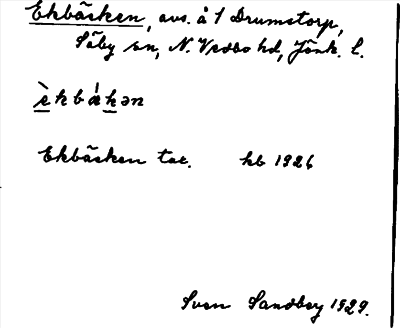 Ekbäcken, avs. å 1 Drumstorp,
Säby sn, N. Vedbo hd, Jönk. l.
è̱kbá̈ḵən
Ekbäcken tor. hb 1926
Sven Sandberg 1929.